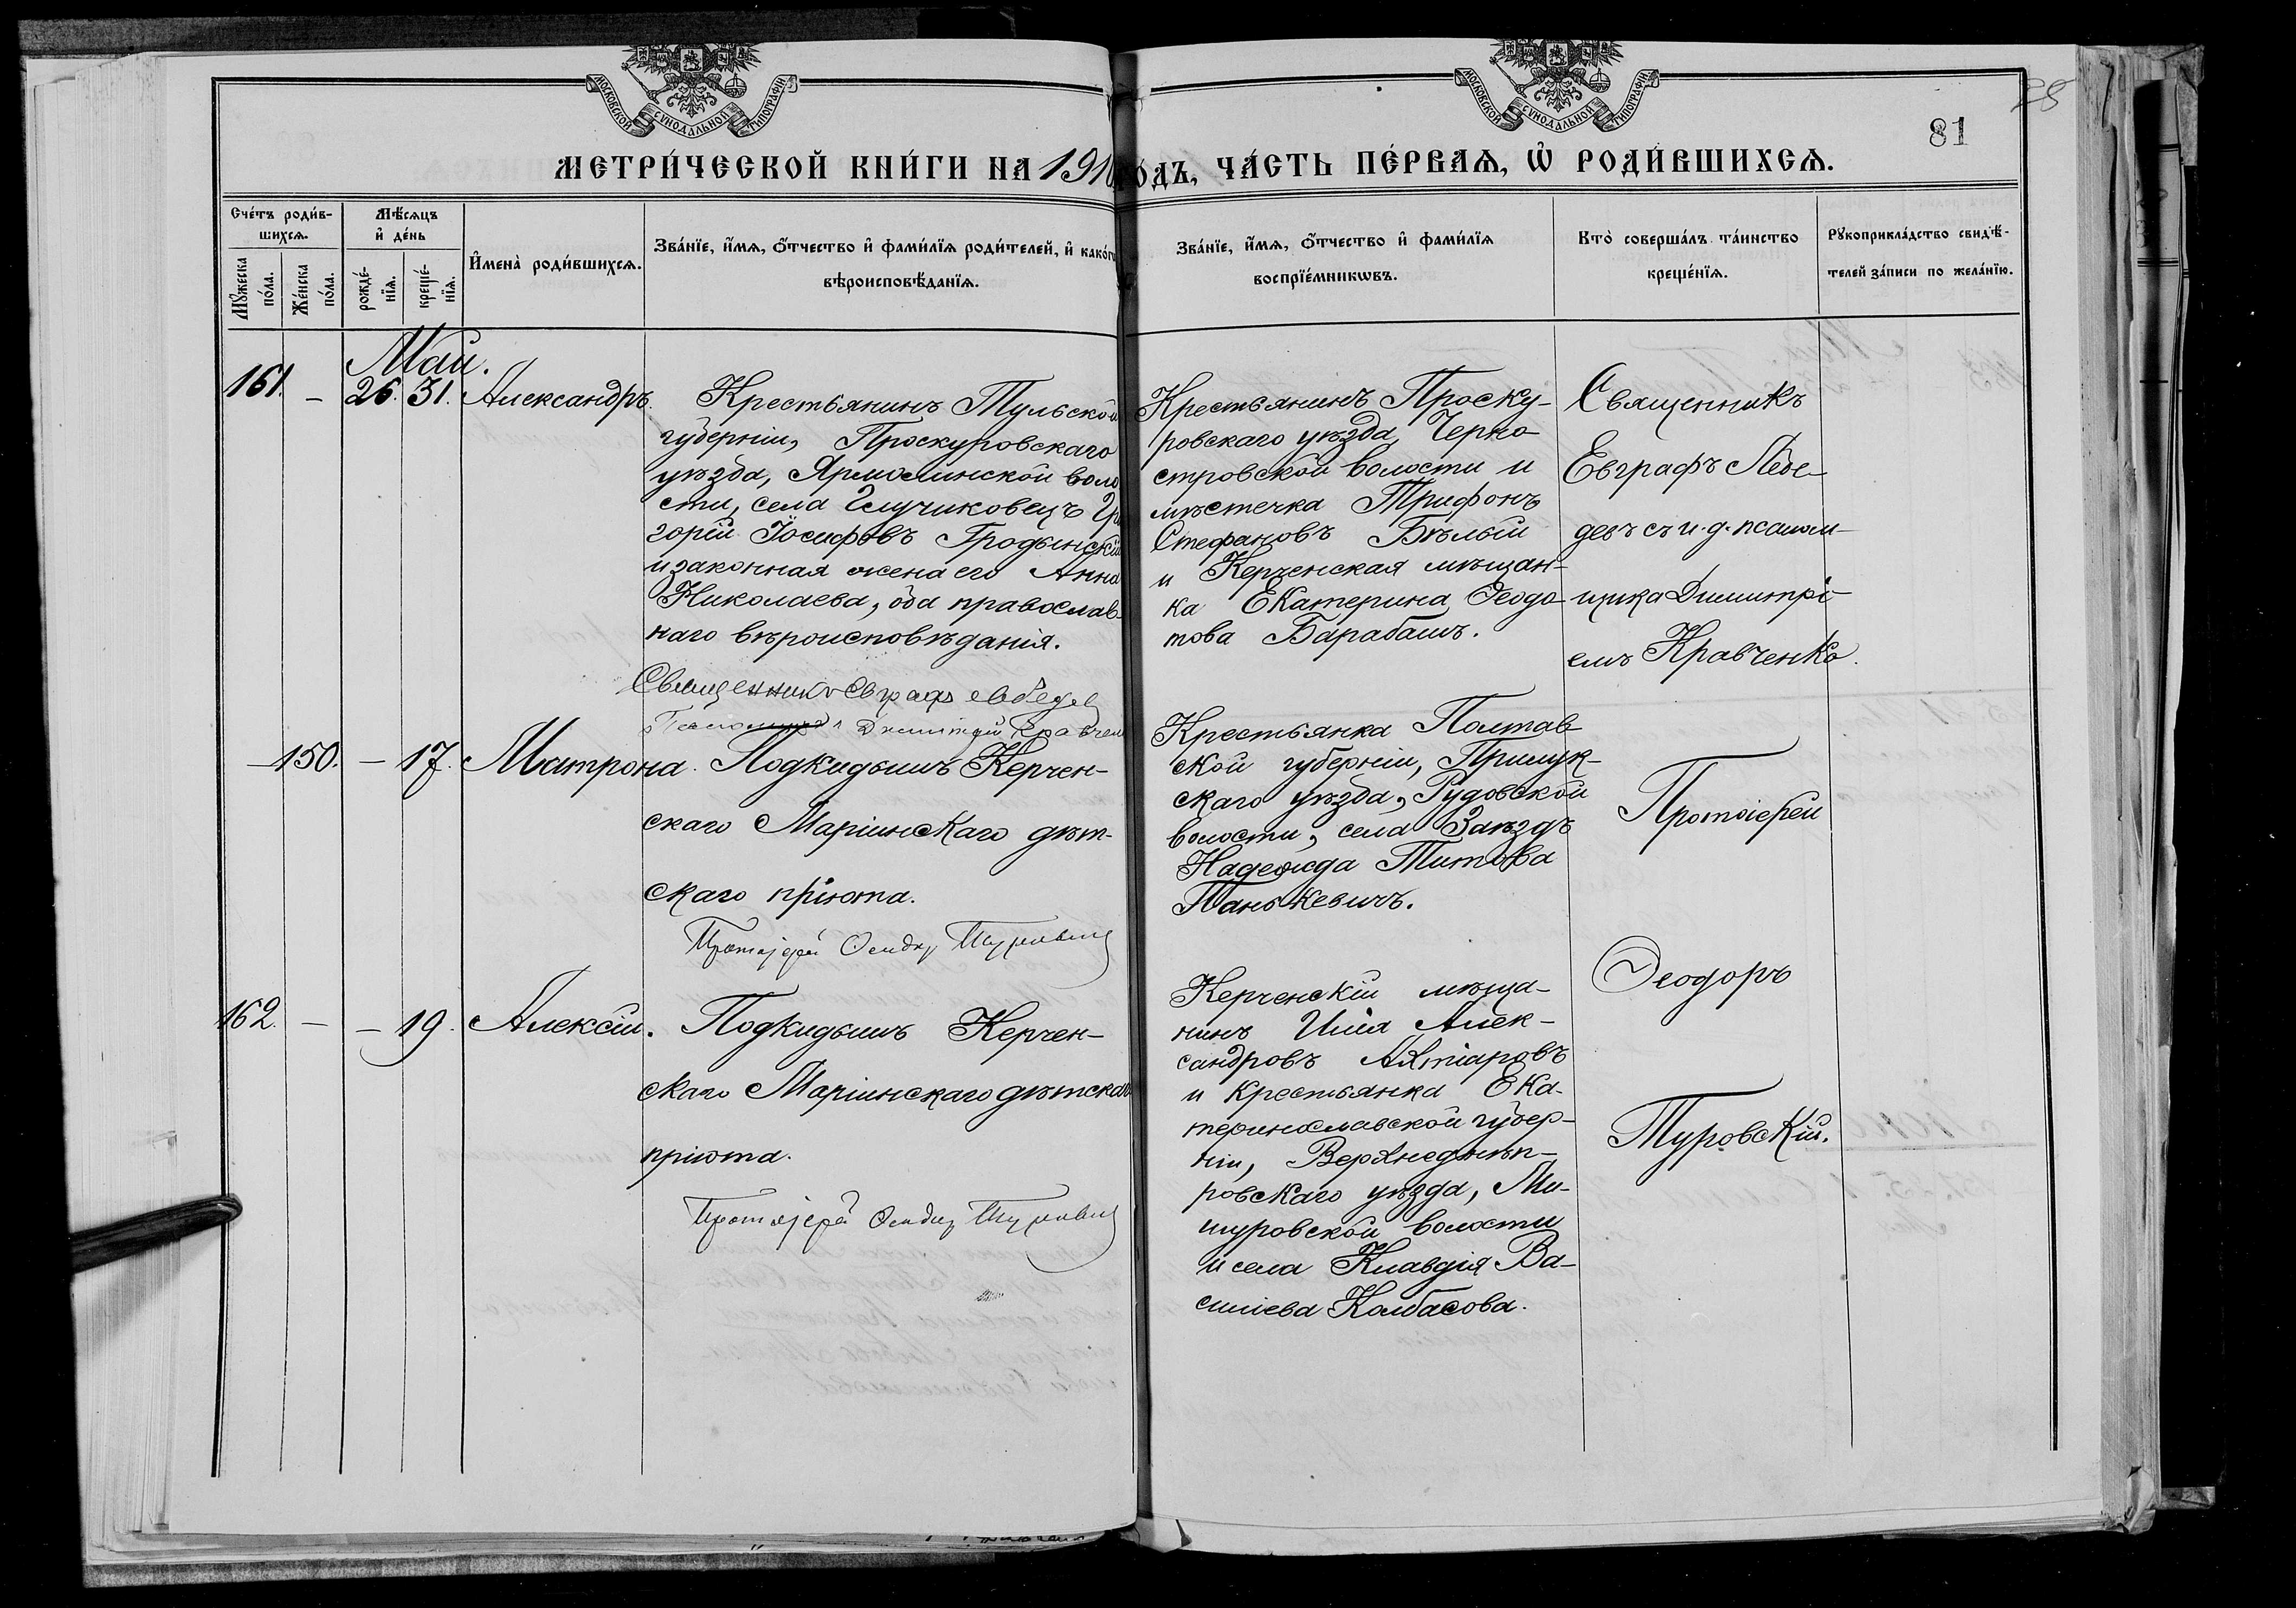 МОСКОВСКОЙ СѴНОДАЛЬНОЙ ТИПОГРАФІИ
МОСКОВСКОЙ СѴНОДАЛЬНОЙ ТИПОГРАФІИ
81
МЕТРИ́ЧЕСКОЙ КНИ́ГИ НА 1910 ГОДЪ, ЧА́СТЬ ПЕ́РВАѦ, Ѡ҆ РОДИ́ВШИХСѦ.
Сче́тъ роди́в-
шихсѧ.
Мꙋ́жеска
по́ла.
Же́нска
по́ла.
Мѣ́сѧцъ
и҆ де́нь
рожде́-
нїѧ.
креще́-
нїѧ.
И҆мена̀ роди́вшихсѧ.
Зва́нїе, и҆́мѧ, ѻ҆́тчество и҆ фами́лїѧ роди́телей, и҆ како́гѡ
вѣроисповѣ́данїѧ.
Зва́нїе, и҆́мѧ, ѻ҆́тчество и҆ фами́лїѧ
воспрїе́мникѡвъ.
Кто̀ соверша́лъ та́инство
креще́нїѧ.
Рꙋкоприкла́дство свидѣ́-
телей за́писи по жела́нїю.
Май.
161. – 26. 31. Александръ.
Крестьянинъ Тульской
губерніи, Проскуровскаго
уѣзда, Ярмолинской воло
сти, села Глучиковецъ Гри
горій Іосифовъ Гродынскій
и законная жена его Анна
Николаева, оба православ-
наго вѣроисповѣданія.
Священникъ Евграфъ Лебедев
Псаломщикъ Димитрій Кравчен
Крестьянинъ Проску-
ровскаго уѣзда, Черно
стровской волости и
мѣстечка Трифонъ
Стефановъ Бѣлый
и Керченская мѣщан-
ка Екатерина Ѳеодо
това Барабашъ.
Священникъ
Евграфъ Лебе-
девъ съ и. д. псалом-
щика Димитрі-
емъ Кравченко.
– 150. – 17. Матрона.
Подкидышъ Керчен-
скаго Маріинскаго дѣт-
скаго пріюта.
Протоіерей Ѳеодор Туровскій
Крестьянка Полтав
ской губерніи, Прилук-
скаго уѣзда, Рудовской
волости, села Заѣздъ
Надежда Титова
Панькевичъ.
Протоіерей
Ѳеодоръ
Туровскій.
162. – – 19. Алексій.
Подкидышъ Керчен-
скаго Маріинскаго дѣтскаго
пріюта.
Протоіерей Ѳеодор Туровскій
Керченскій мѣща-
нинъ Илія Алек-
сандровъ Ахтіаровъ
и крестьянка Ека-
теринославской губер-
ніи, Верхнеднѣп-
ровскаго уѣзда, Ми-
шуровской волости
и села Клавдія Ва-
силіева Колбасова.